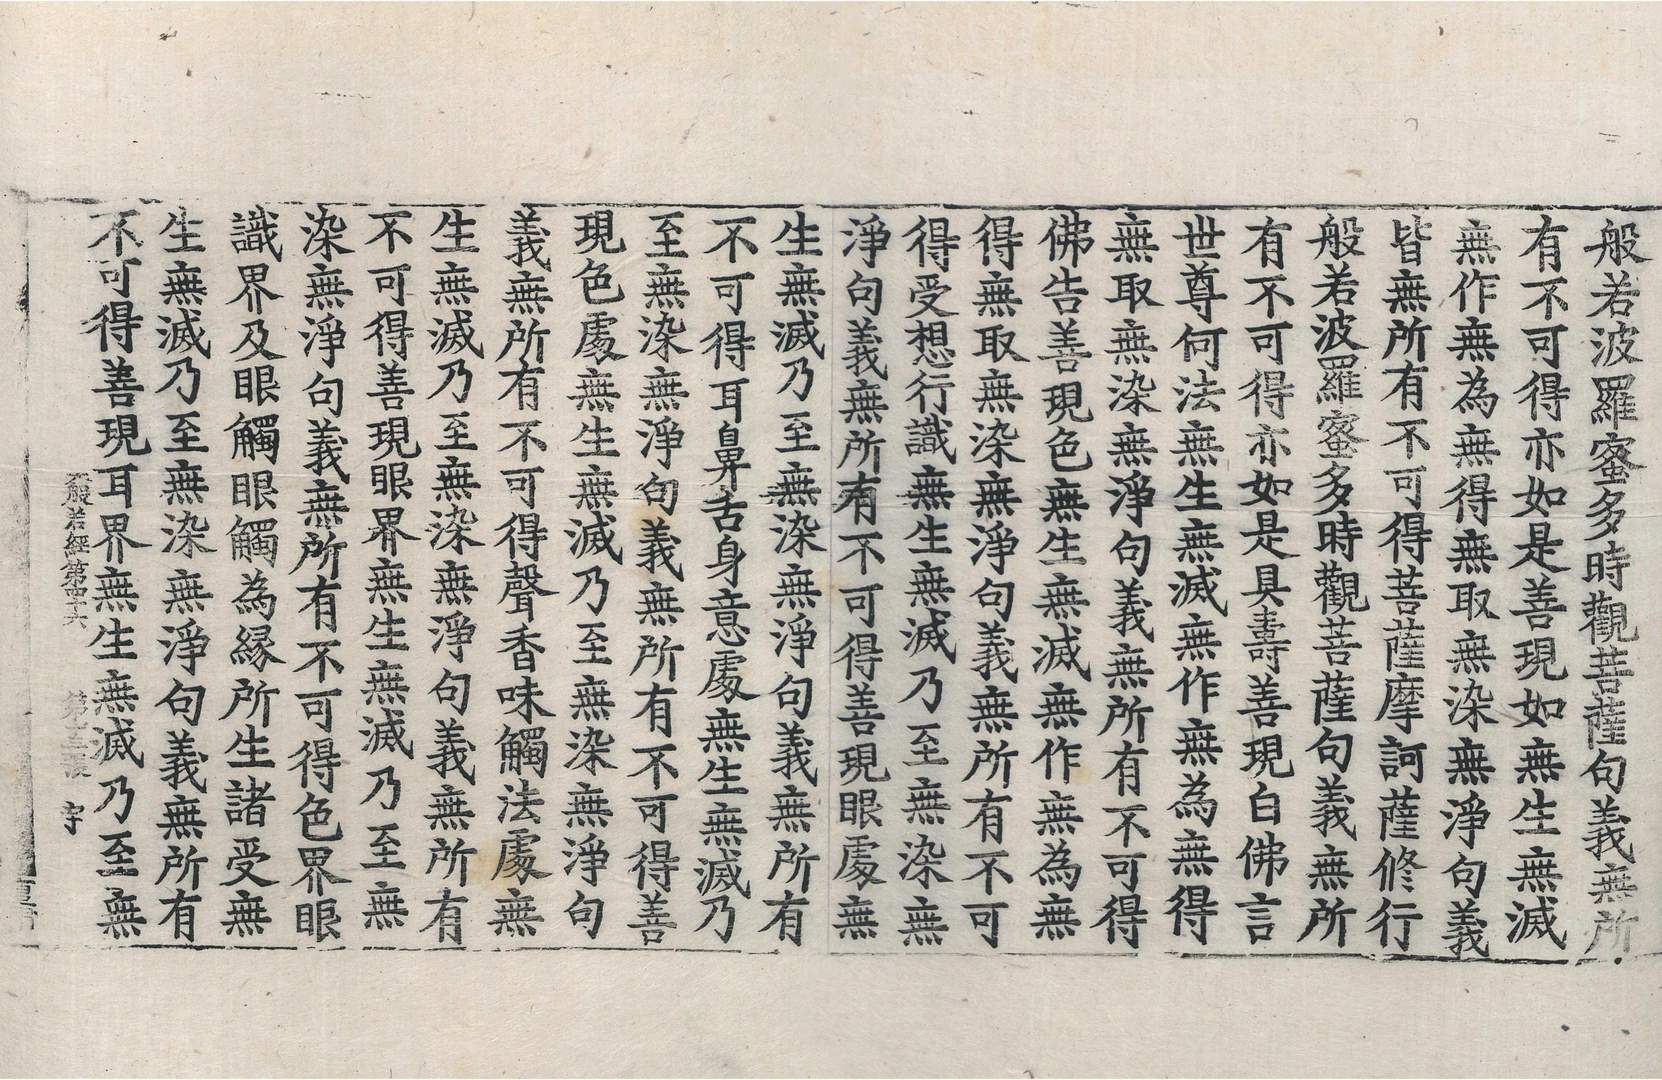 般若波羅蜜多時觀菩薩句義無所
有不可得亦如是善現如無生無滅
無作無為無得無取無染無淨句義
皆無所有不可得菩薩摩訶薩修行
般若波羅蜜多時觀菩薩句義無所
有不可得亦如是具壽善現白佛言
世尊何法無生無滅無作無為無得
無取無染無淨句義無所有不可得
佛告善現色無生無滅無作無為無
得無取無染無淨句義無所有不可
得受想行識無生無滅乃至無染無
淨句義無所有不可得善現眼處無
生無滅乃至無染無淨句義無所有
不可得耳鼻舌身意處無生無滅乃
至無染無淨句義無所有不可得善
現色處無生無滅乃至無染無淨句
義無所有不可得聲香味觸法處無
生無滅乃至無染無淨句義無所有
不可得善現眼界無生無滅乃至無
染無淨句義無所有不可得色界眼
識界及眼觸眼觸為緣所生諸受無
生無滅乃至無染無淨句義無所有
不可得善現耳界無生無滅乃至無
般若經第四十六 第